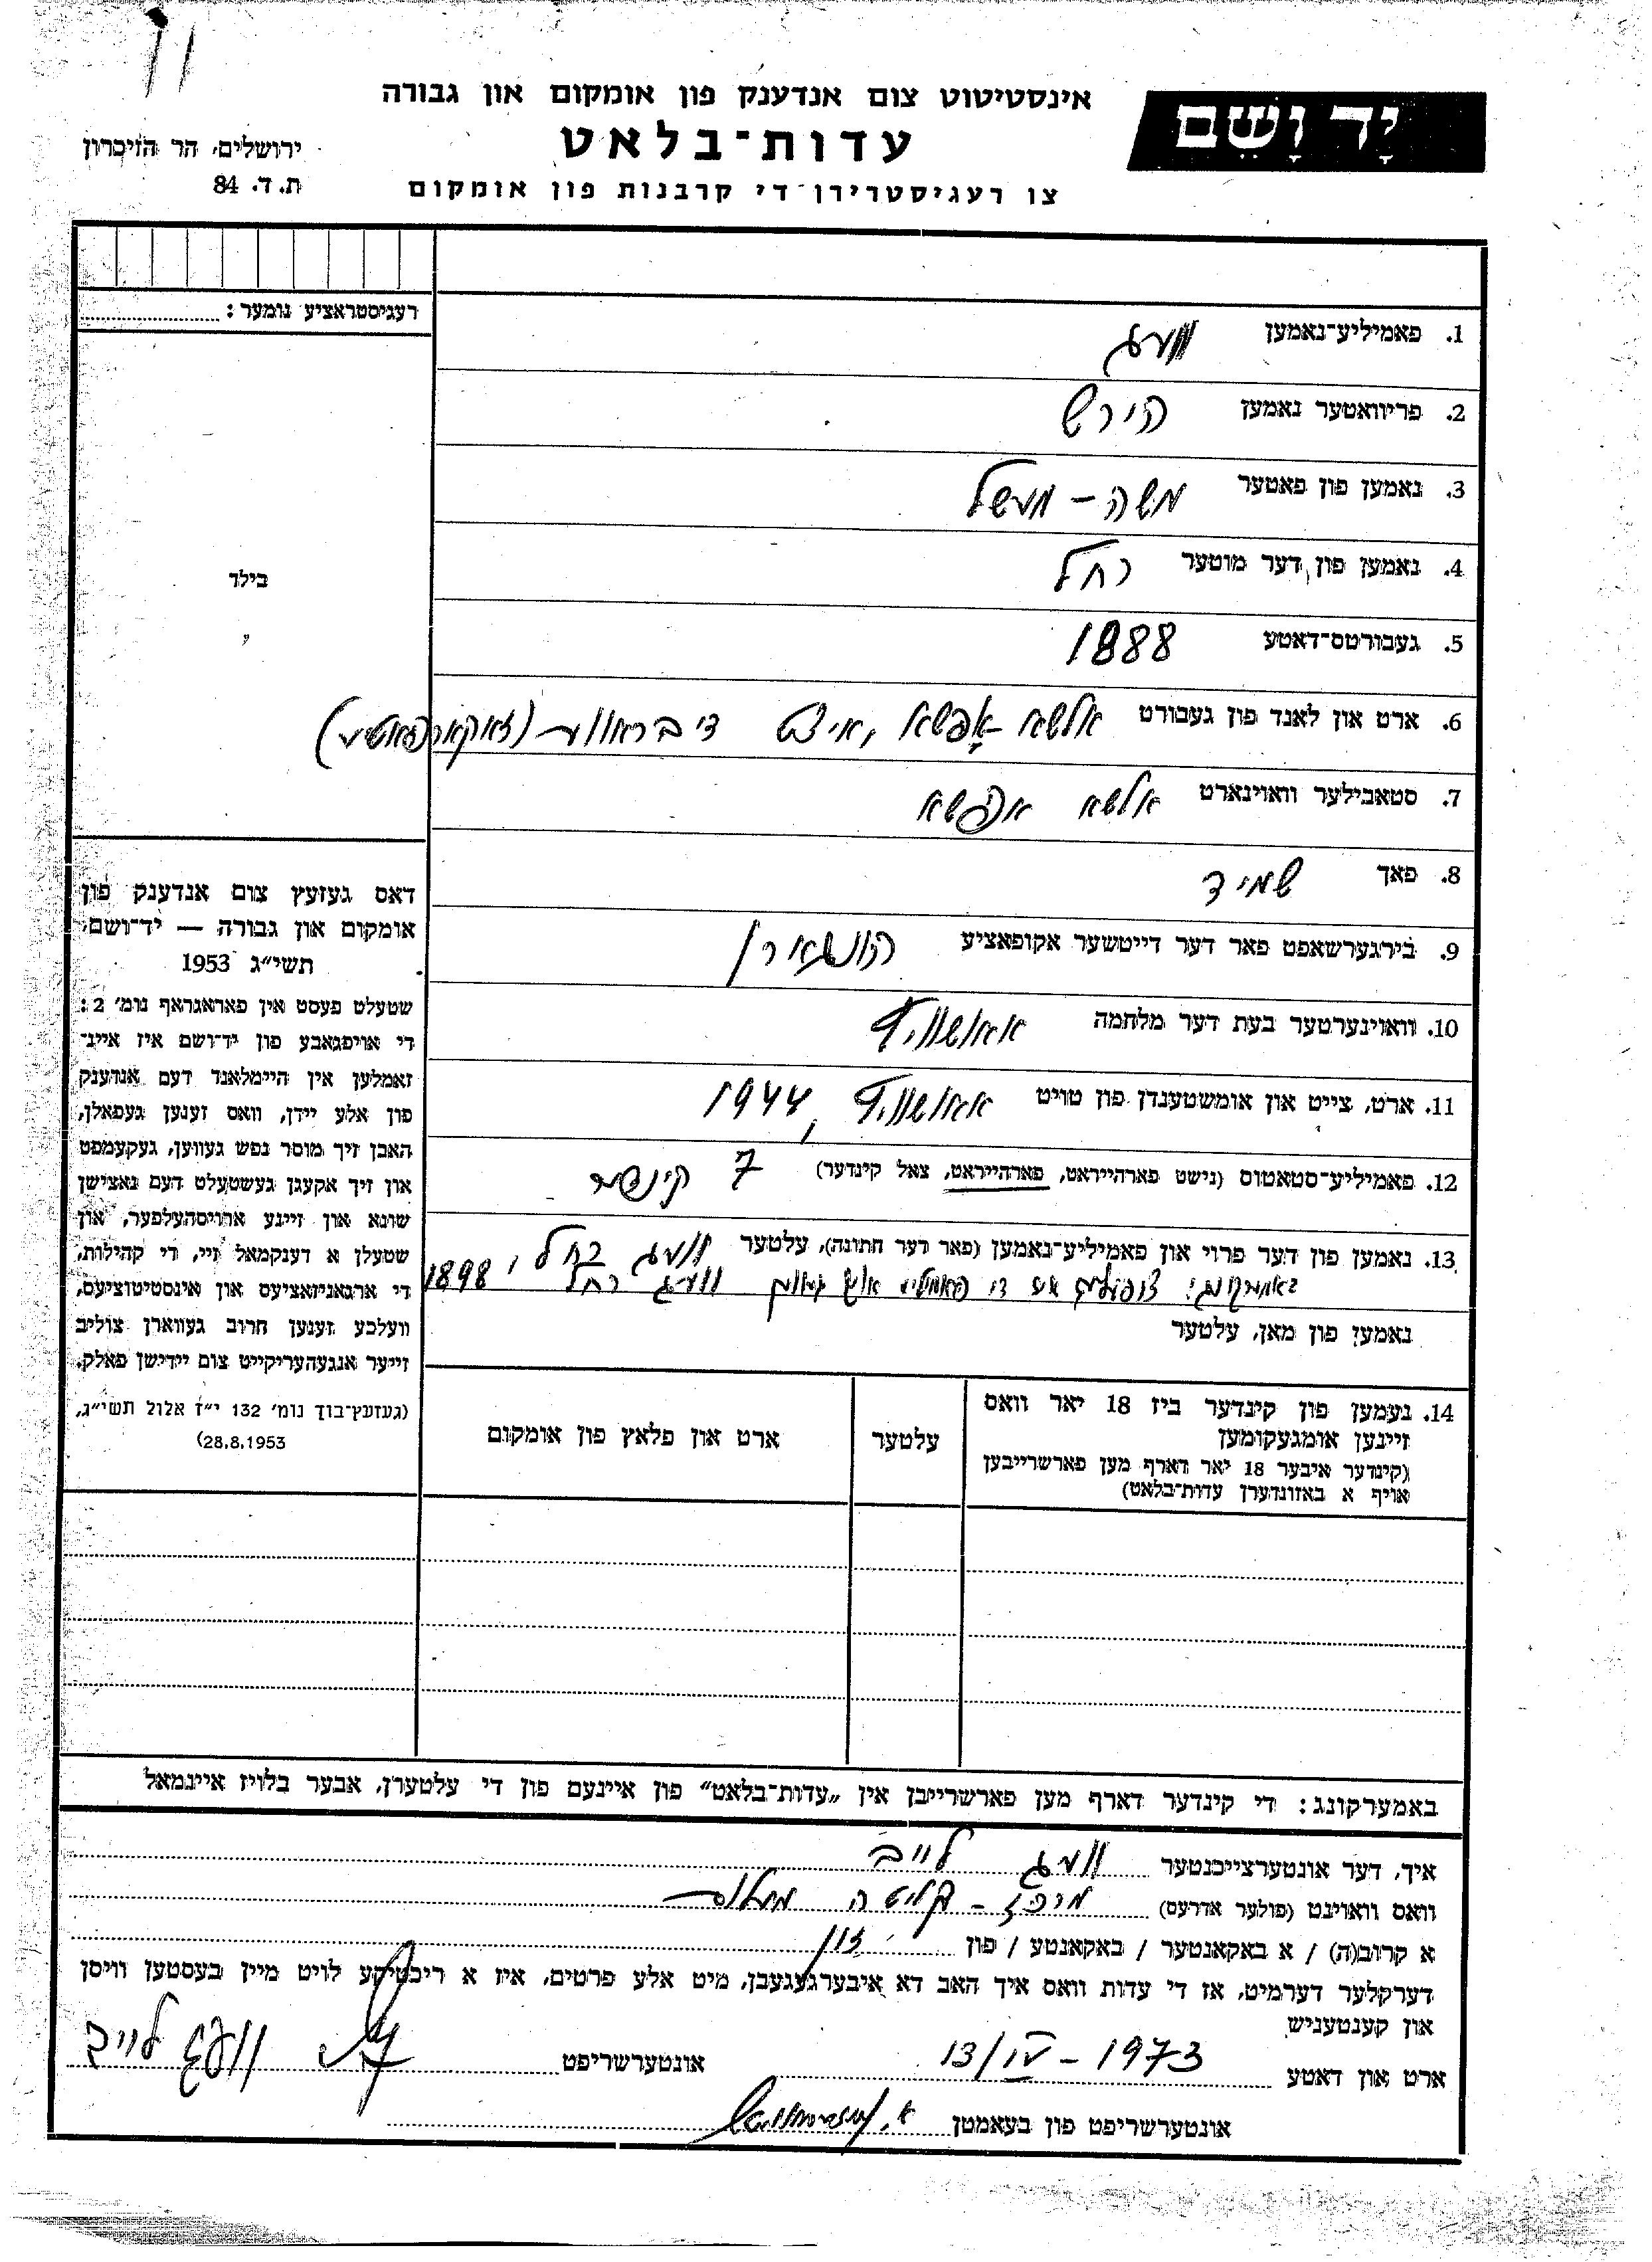 יָד וָשֵׁם
אינסטיטוט צום אנדענק פון אומקום און גבורה
עדות־בלאט
צו רעגיסטרירן די קרבנות פון אומקום
ירושלים, הר הזיכרון
ת. ד. 84
רעגיסטראציע נומער:
1. פאמיליע־נאמען וועג
2. פריוואטער נאמען הירש
3. נאמען פון פאטער משה –
4. נאמען פון דער מוטער רחל
5. געבורטס־דאטע 1888
6. ארט און לאנד פון געבורט אלשא אָפשא, איצט
7. סטאבילער וואוינארט אלשא אפשא
8. פאך שמיד
9. בירגערשאפט פאר דער דייטשער אקופאציע
10. וואוינערטער בעת דער מלחמה אאושוויץ
11. ארט, צייט און אומשטענדן פון טויט אאושוויץ, 1944
12. פאמיליע־סטאטוס (נישט פארהייראט, פארהייראט, צאל קינדער) 7 קינדער
13. נאמען פון דער פרוי און פאמיליע־נאמען (פאר דער חתונה), עלטער וועג רחל, 1898
באמערקונג: די פאמיליע וועג רחל
נאמען פון מאן, עלטער
14. נעמען פון קינדער ביז 18 יאר וואס
זיינען אומגעקומען
(קינדער איבער 18 יאר דארף מען פארשרייבען
אויף א באזונדערן עדות־בלאט)
עלטער
ארט און פלאץ פון אומקום
בילד
דאס געזעץ צום אנדענק פון
אומקום און גבורה — יד־ושם,
תשי״ג 1953
שטעלט פעסט אין פאראגראף נומ׳ 2:
די אויפגאבע פון יד־ושם איז איינ־
זאמלען אין היימלאנד דעם אנדענק
פון אלע יידן, וואס זענען געפאלן,
האבן זיך מוסר נפש געווען, געקעמפט
און זיך אקעגן געשטעלט דעם נאצישן
שונא און זיינע ארויסהעלפער, און
שטעלן א דענקמאל זיי, די קהילות,
די ארגאניזאציעס און אינסטיטוציעס,
וועלכע זענען חרוב געווארן צוליב
זייער אנגעהעריקייט צום יידישן פאלק.
(געזעץ־בוך נומ׳ 132 י״ז אלול תשי״ג,
28.8.1953)
באמערקונג: די קינדער דארף מען פארשרייבן אין „עדות־בלאט״ פון איינעם פון די עלטערן, אבער בלויז איינמאל
איך, דער אונטערצייכנטער וועג לייב
וואס וואוינט (פולער אדרעס) מרכז – קליטה
א קרוב(ה) / א באקאנטער / באקאנטע / פון זון
דערקלער דערמיט, אז די עדות וואס איך האב דא איבערגעגעבן, מיט אלע פרטים, איז א ריכטיקע לויט מיין בעסטען וויסן
און קענטעניש
ארט און דאטע 13/IV – 1973 אונטערשריפט וועג לייב
אונטערשריפט פון בעאמטן